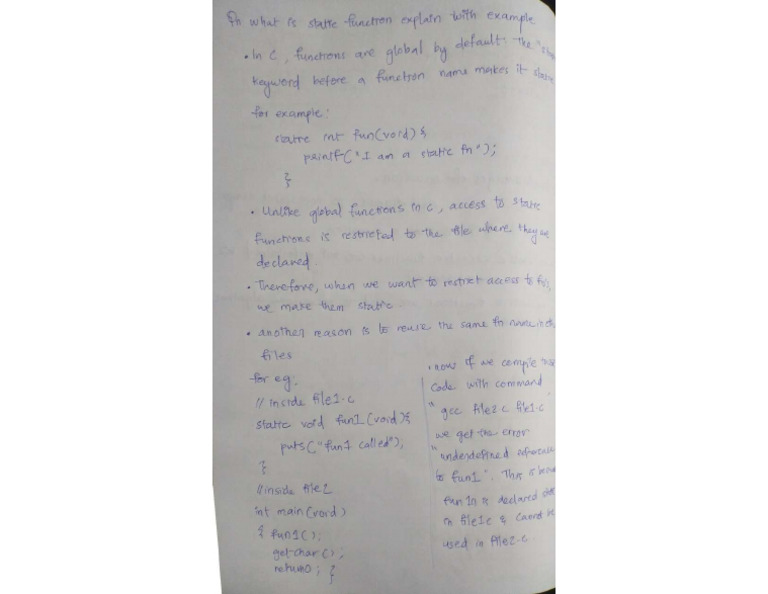 what is static function explain with example
• In C, functions are global by default. The
keyword before a function name makes it static
for example:
static int fun(void) {
printf("I am a static fn");
}
• Unlike global functions in C, access to static
functions is restricted to the file where they are
declared.
• Therefore, when we want to restrict access to
we make them static.
• another reason is to reuse the same fn name in
files
for eg.
// inside file1.c
static void fun1(void){
puts("fun1 called");
}
//inside file2
int main(void)
{ fun1();
getchar();
return0; }
• now if we compile
code with command
" gcc file2.c file1.c
we get the error
"
to fun1". This is
fun 1n is declared
in file1c & cannot be
used in file2.c.